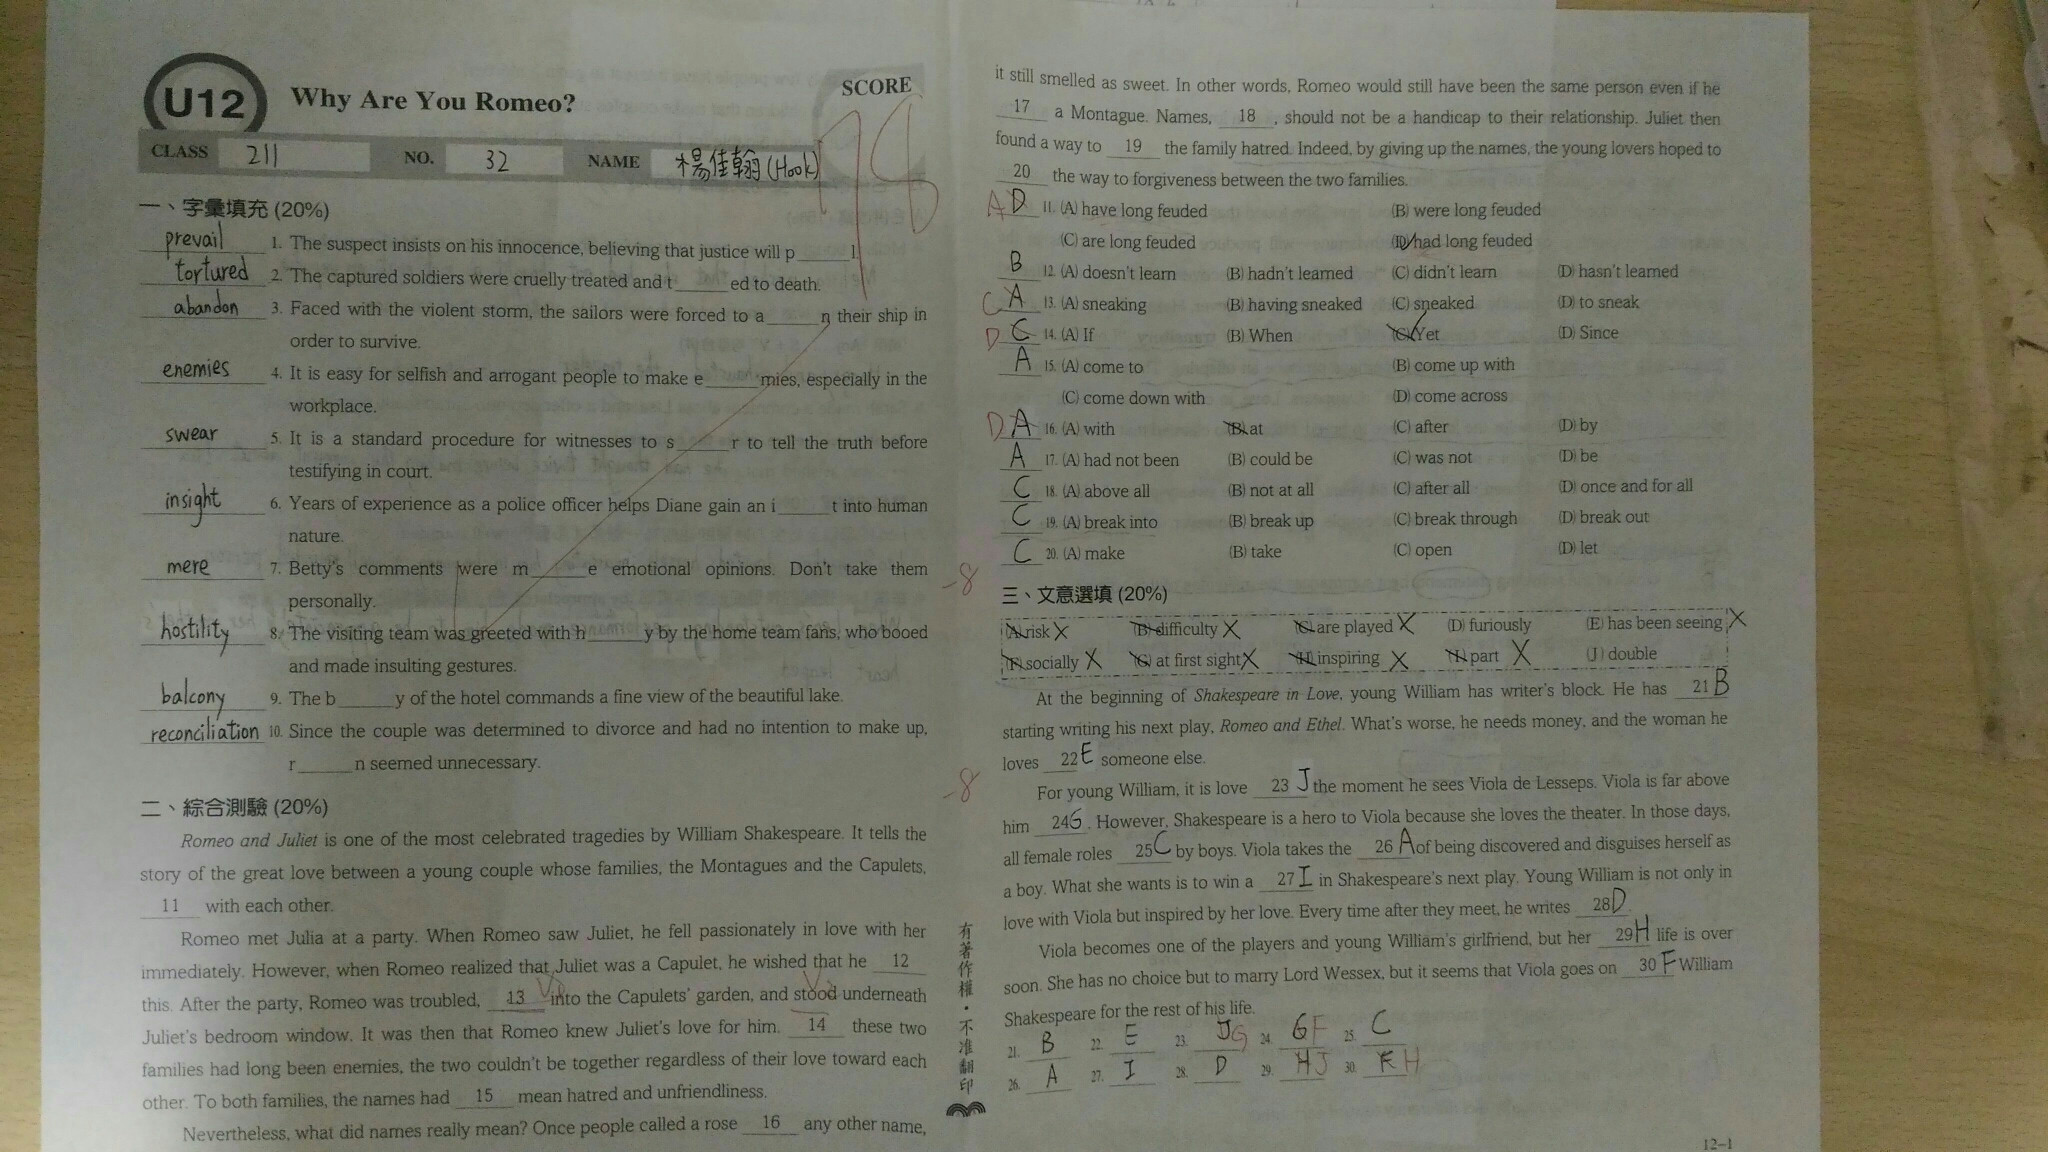 U12 Why Are You Romeo? SCORE
78
CLASS 211 NO. 32 NAME 楊佳翰(Hook)
一、字彙填充 (20%)
prevail 1. The suspect insists on his innocence, believing that justice will p______l.
tortured 2. The captured soldiers were cruelly treated and t______ed to death.
abandon 3. Faced with the violent storm, the sailors were forced to a______n their ship in
order to survive.
enemies 4. It is easy for selfish and arrogant people to make e______mies, especially in the
workplace.
swear 5. It is a standard procedure for witnesses to s______r to tell the truth before
testifying in court.
insight 6. Years of experience as a police officer helps Diane gain an i______t into human
nature.
mere 7. Betty's comments were m______e emotional opinions. Don't take them
personally.
hostility 8. The visiting team was greeted with h______y by the home team fans, who booed
and made insulting gestures.
balcony 9. The b______y of the hotel commands a fine view of the beautiful lake.
reconciliation 10. Since the couple was determined to divorce and had no intention to make up,
r______n seemed unnecessary.
-8
二、綜合測驗 (20%)
Romeo and Juliet is one of the most celebrated tragedies by William Shakespeare. It tells the
story of the great love between a young couple whose families, the Montagues and the Capulets,
11 with each other.
Romeo met Julia at a party. When Romeo saw Juliet, he fell passionately in love with her
immediately. However, when Romeo realized that Juliet was a Capulet, he wished that he 12
this. After the party, Romeo was troubled, 13 into the Capulets' garden, and stood underneath
Juliet's bedroom window. It was then that Romeo knew Juliet's love for him. 14 these two
families had long been enemies, the two couldn't be together regardless of their love toward each
other. To both families, the names had 15 mean hatred and unfriendliness.
Nevertheless, what did names really mean? Once people called a rose 16 any other name,
有著作權・不准翻印
it still smelled as sweet. In other words, Romeo would still have been the same person even if he
17 a Montague. Names, 18 , should not be a handicap to their relationship. Juliet then
found a way to 19 the family hatred. Indeed, by giving up the names, the young lovers hoped to
20 the way to forgiveness between the two families.
A D 11. (A) have long feuded (B) were long feuded
(C) are long feuded (D) had long feuded
B 12. (A) doesn't learn (B) hadn't learned (C) didn't learn (D) hasn't learned
C A 13. (A) sneaking (B) having sneaked (C) sneaked (D) to sneak
D C 14. (A) If (B) When (C) Yet (D) Since
A 15. (A) come to (B) come up with
(C) come down with (D) come across
D A 16. (A) with (B) at (C) after (D) by
A 17. (A) had not been (B) could be (C) was not (D) be
C 18. (A) above all (B) not at all (C) after all (D) once and for all
C 19. (A) break into (B) break up (C) break through (D) break out
C 20. (A) make (B) take (C) open (D) let
-8
三、文意選填 (20%)
(A) risk (B) difficulty (C) are played (D) furiously (E) has been seeing
(F) socially (G) at first sight (H) inspiring (I) part (J) double
At the beginning of Shakespeare in Love, young William has writer's block. He has 21 B
starting writing his next play, Romeo and Ethel. What's worse, he needs money, and the woman he
loves 22 E someone else.
For young William, it is love 23 J the moment he sees Viola de Lesseps. Viola is far above
him 24 G . However, Shakespeare is a hero to Viola because she loves the theater. In those days,
all female roles 25 C by boys. Viola takes the 26 A of being discovered and disguises herself as
a boy. What she wants is to win a 27 I in Shakespeare's next play. Young William is not only in
love with Viola but inspired by her love. Every time after they meet, he writes 28 D .
Viola becomes one of the players and young William's girlfriend, but her 29 H life is over
soon. She has no choice but to marry Lord Wessex, but it seems that Viola goes on 30 F William
Shakespeare for the rest of his life.
21. B 22. E 23. J G 24. G F 25. C
26. A 27. I 28. D 29. H J 30. F H
12-1